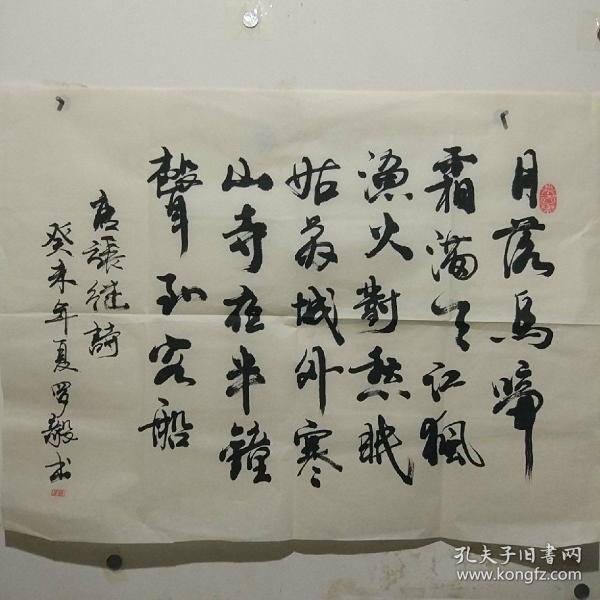 月落烏啼
霜滿天江楓
漁火對愁眠
姑蘇城外寒
山寺夜半鐘
聲到客船
唐張继詩
癸未年夏罗毅书
孔夫子旧书网
www.kongfz.com